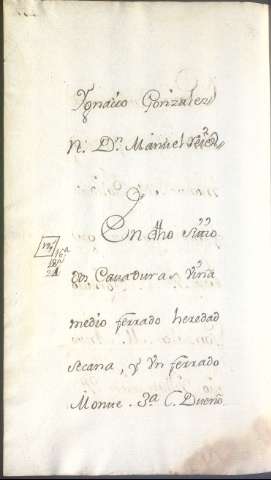 Ygnacio Gonzalez
N. Dn. Manuel
Y
En dho sitio
en Cavaduras Viña
medio ferrado heredad
secana, y Vn ferrado
Monte. 3ª C. Dueño